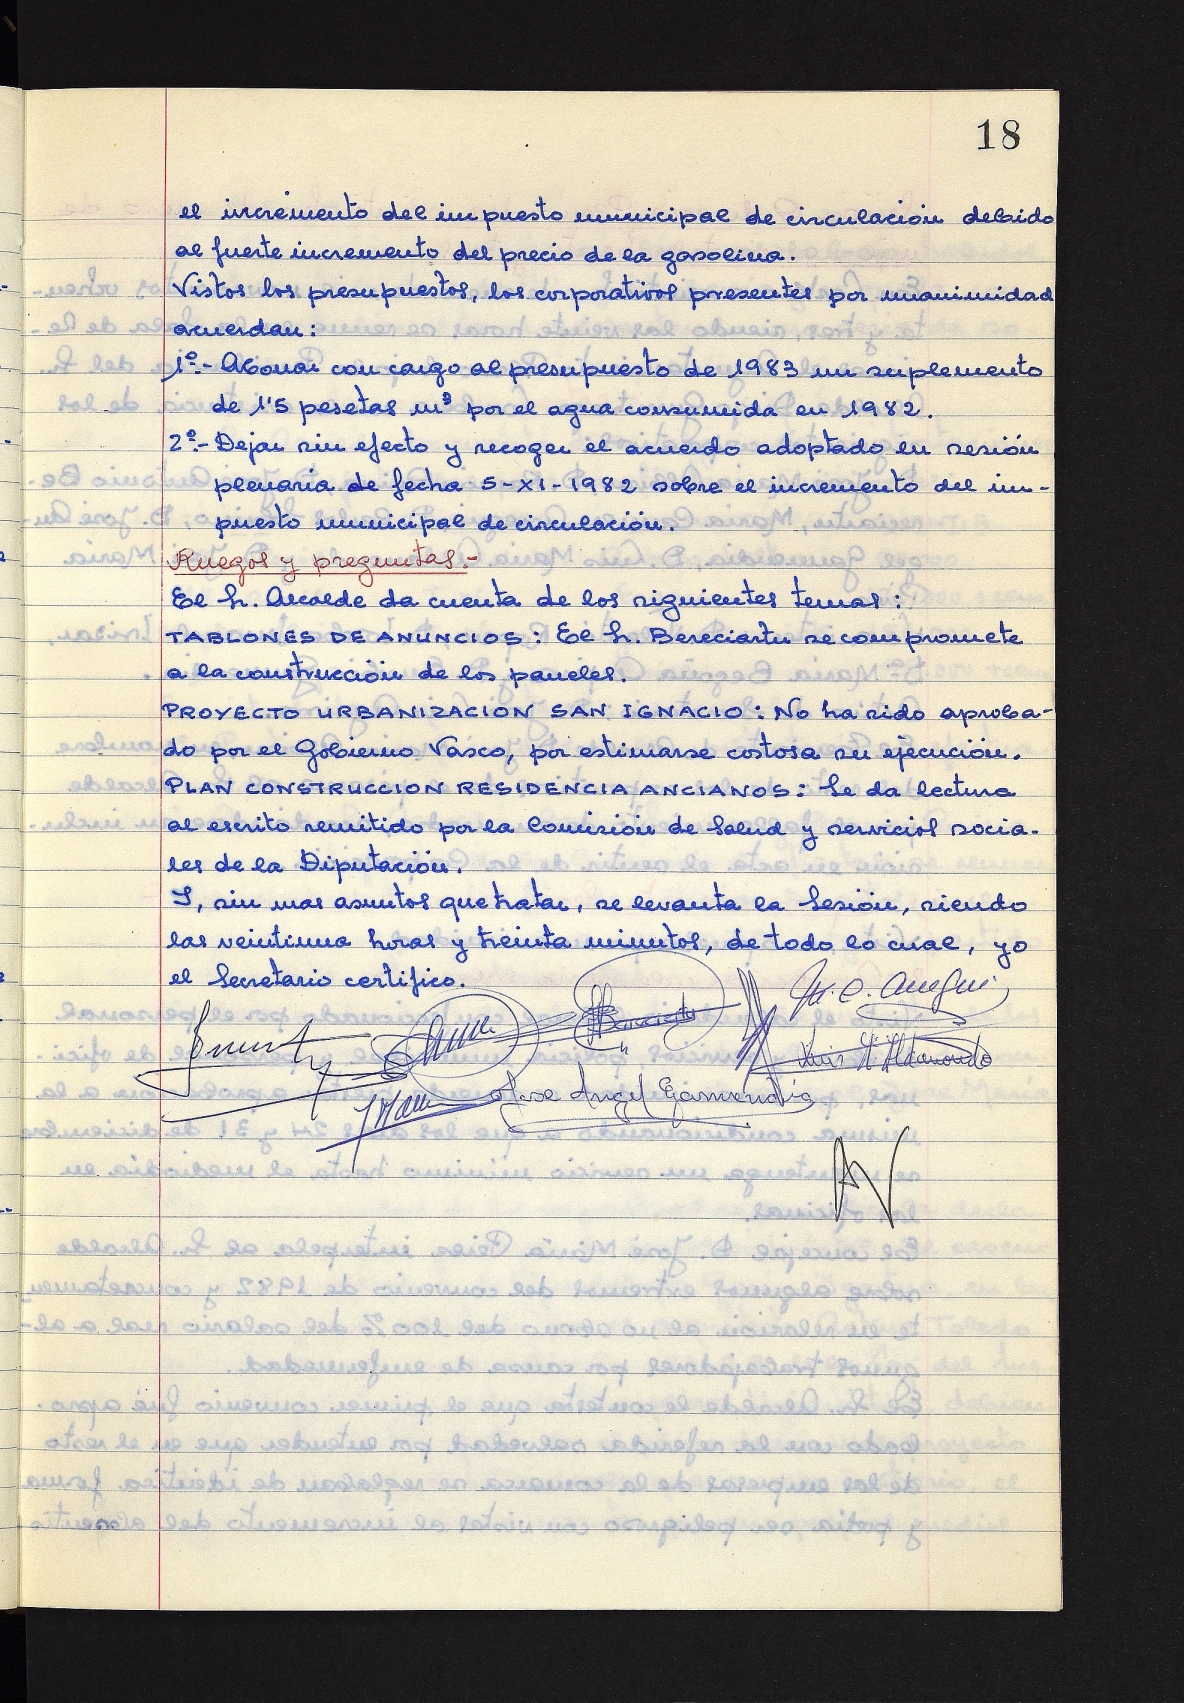 18
el incremento del impuesto municipal de circulación debido
al fuerte incremento del precio de la gasolina.
Vistos los presupuestos, los corporativos presentes por unanimidad
acuerdan:
1º.- Abonar con cargo al presupuesto de 1983 un suplemento
de 1'5 pesetas m³ por el agua consumida en 1982.
2º.- Dejar sin efecto y recoger el acuerdo adoptado en sesión
plenaria de fecha 5-XI-1982 sobre el incremento del im-
puesto municipal de circulación.
Ruegos y preguntas.-
El Sr. Alcalde da cuenta de los siguientes temas:
TABLONES DE ANUNCIOS: El Sr. Bereciartu se compromete
a la construcción de los paneles.
PROYECTO URBANIZACION SAN IGNACIO: No ha sido aproba-
do por el Gobierno Vasco, por estimarse costosa su ejecución.
PLAN CONSTRUCCION RESIDENCIA ANCIANOS: Se da lectura
al escrito remitido por la Comisión de Salud y servicios socia-
les de la Diputación.
Y, sin mas asuntos que tratar, se levanta la Sesión, siendo
las veintiuna horas y treinta minutos, de todo lo cual, yo
el Secretario certifico.
Bereciartu
Luis M. Aldanondo
Jose Angel Garmendia